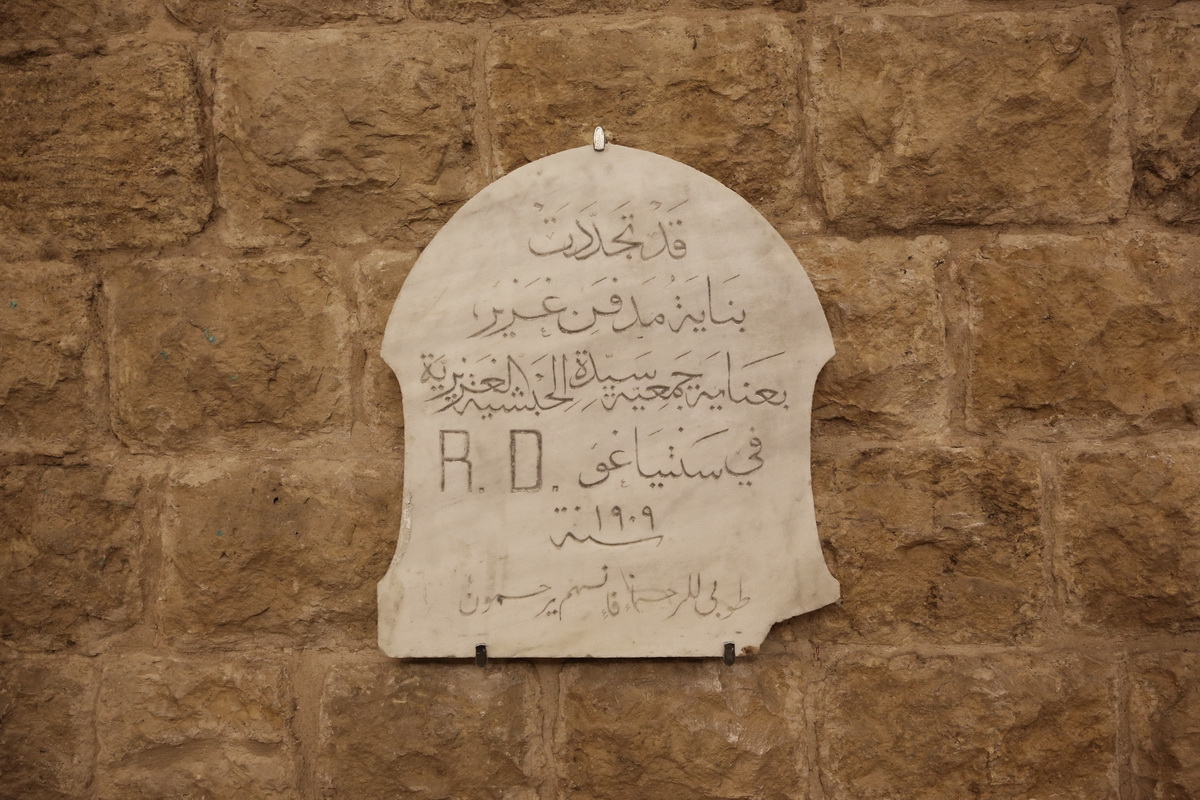 قَدْ تَجَدَّدَتْ
بنَايَةُ مَدفَنِ غَزِير
بعنَايَة جَمعِيَّة سَيِّدَةِ الحَبَشيَّه الغَزيريَّة
في سَنتيَاغو R. D.
سنة ١٩٠٩
طوبى للرحماء فإنهم يرحمون